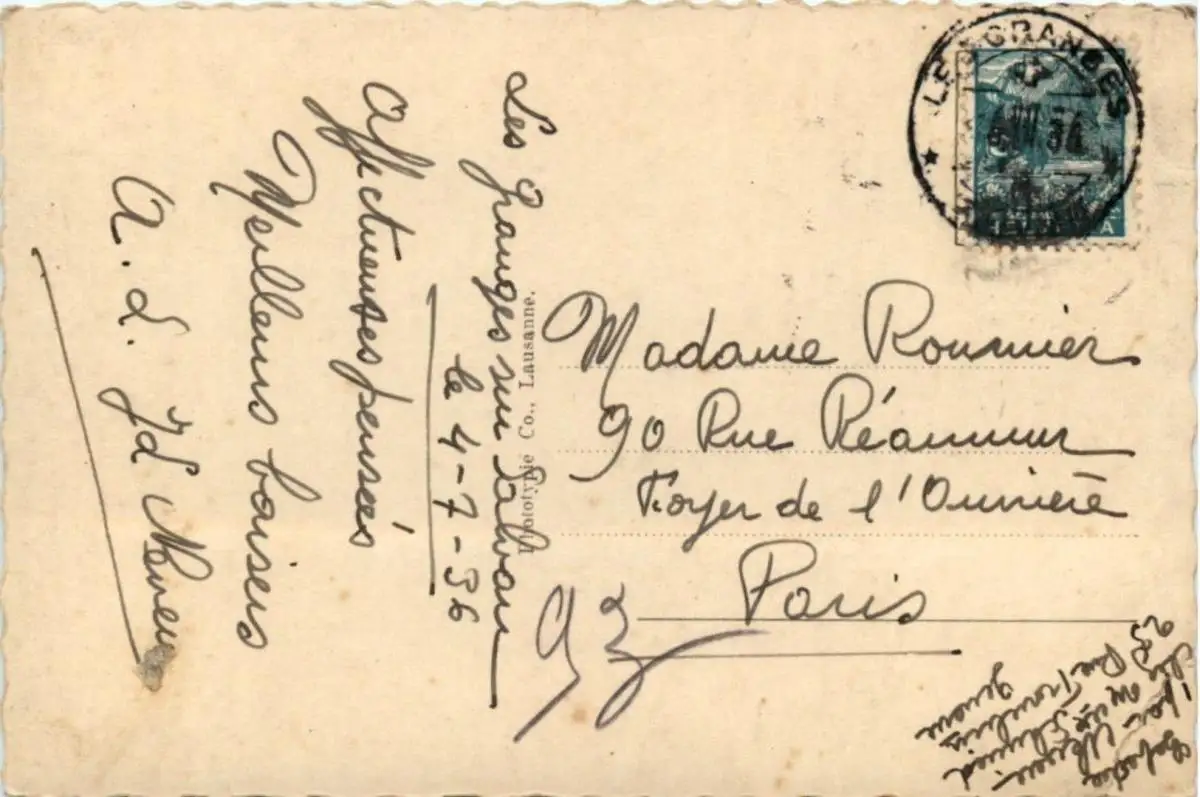 Les Granges sur Salvan
le 4-7-36
Affectueuses pensées
Meilleurs baisers
A. d. Jd Neveu
Phototypie Co., Lausanne.
LES GRANGES
Madame Roumier
90 Rue Réaumur
Foyer de l'Ouvrière
Paris
93
25 Rue